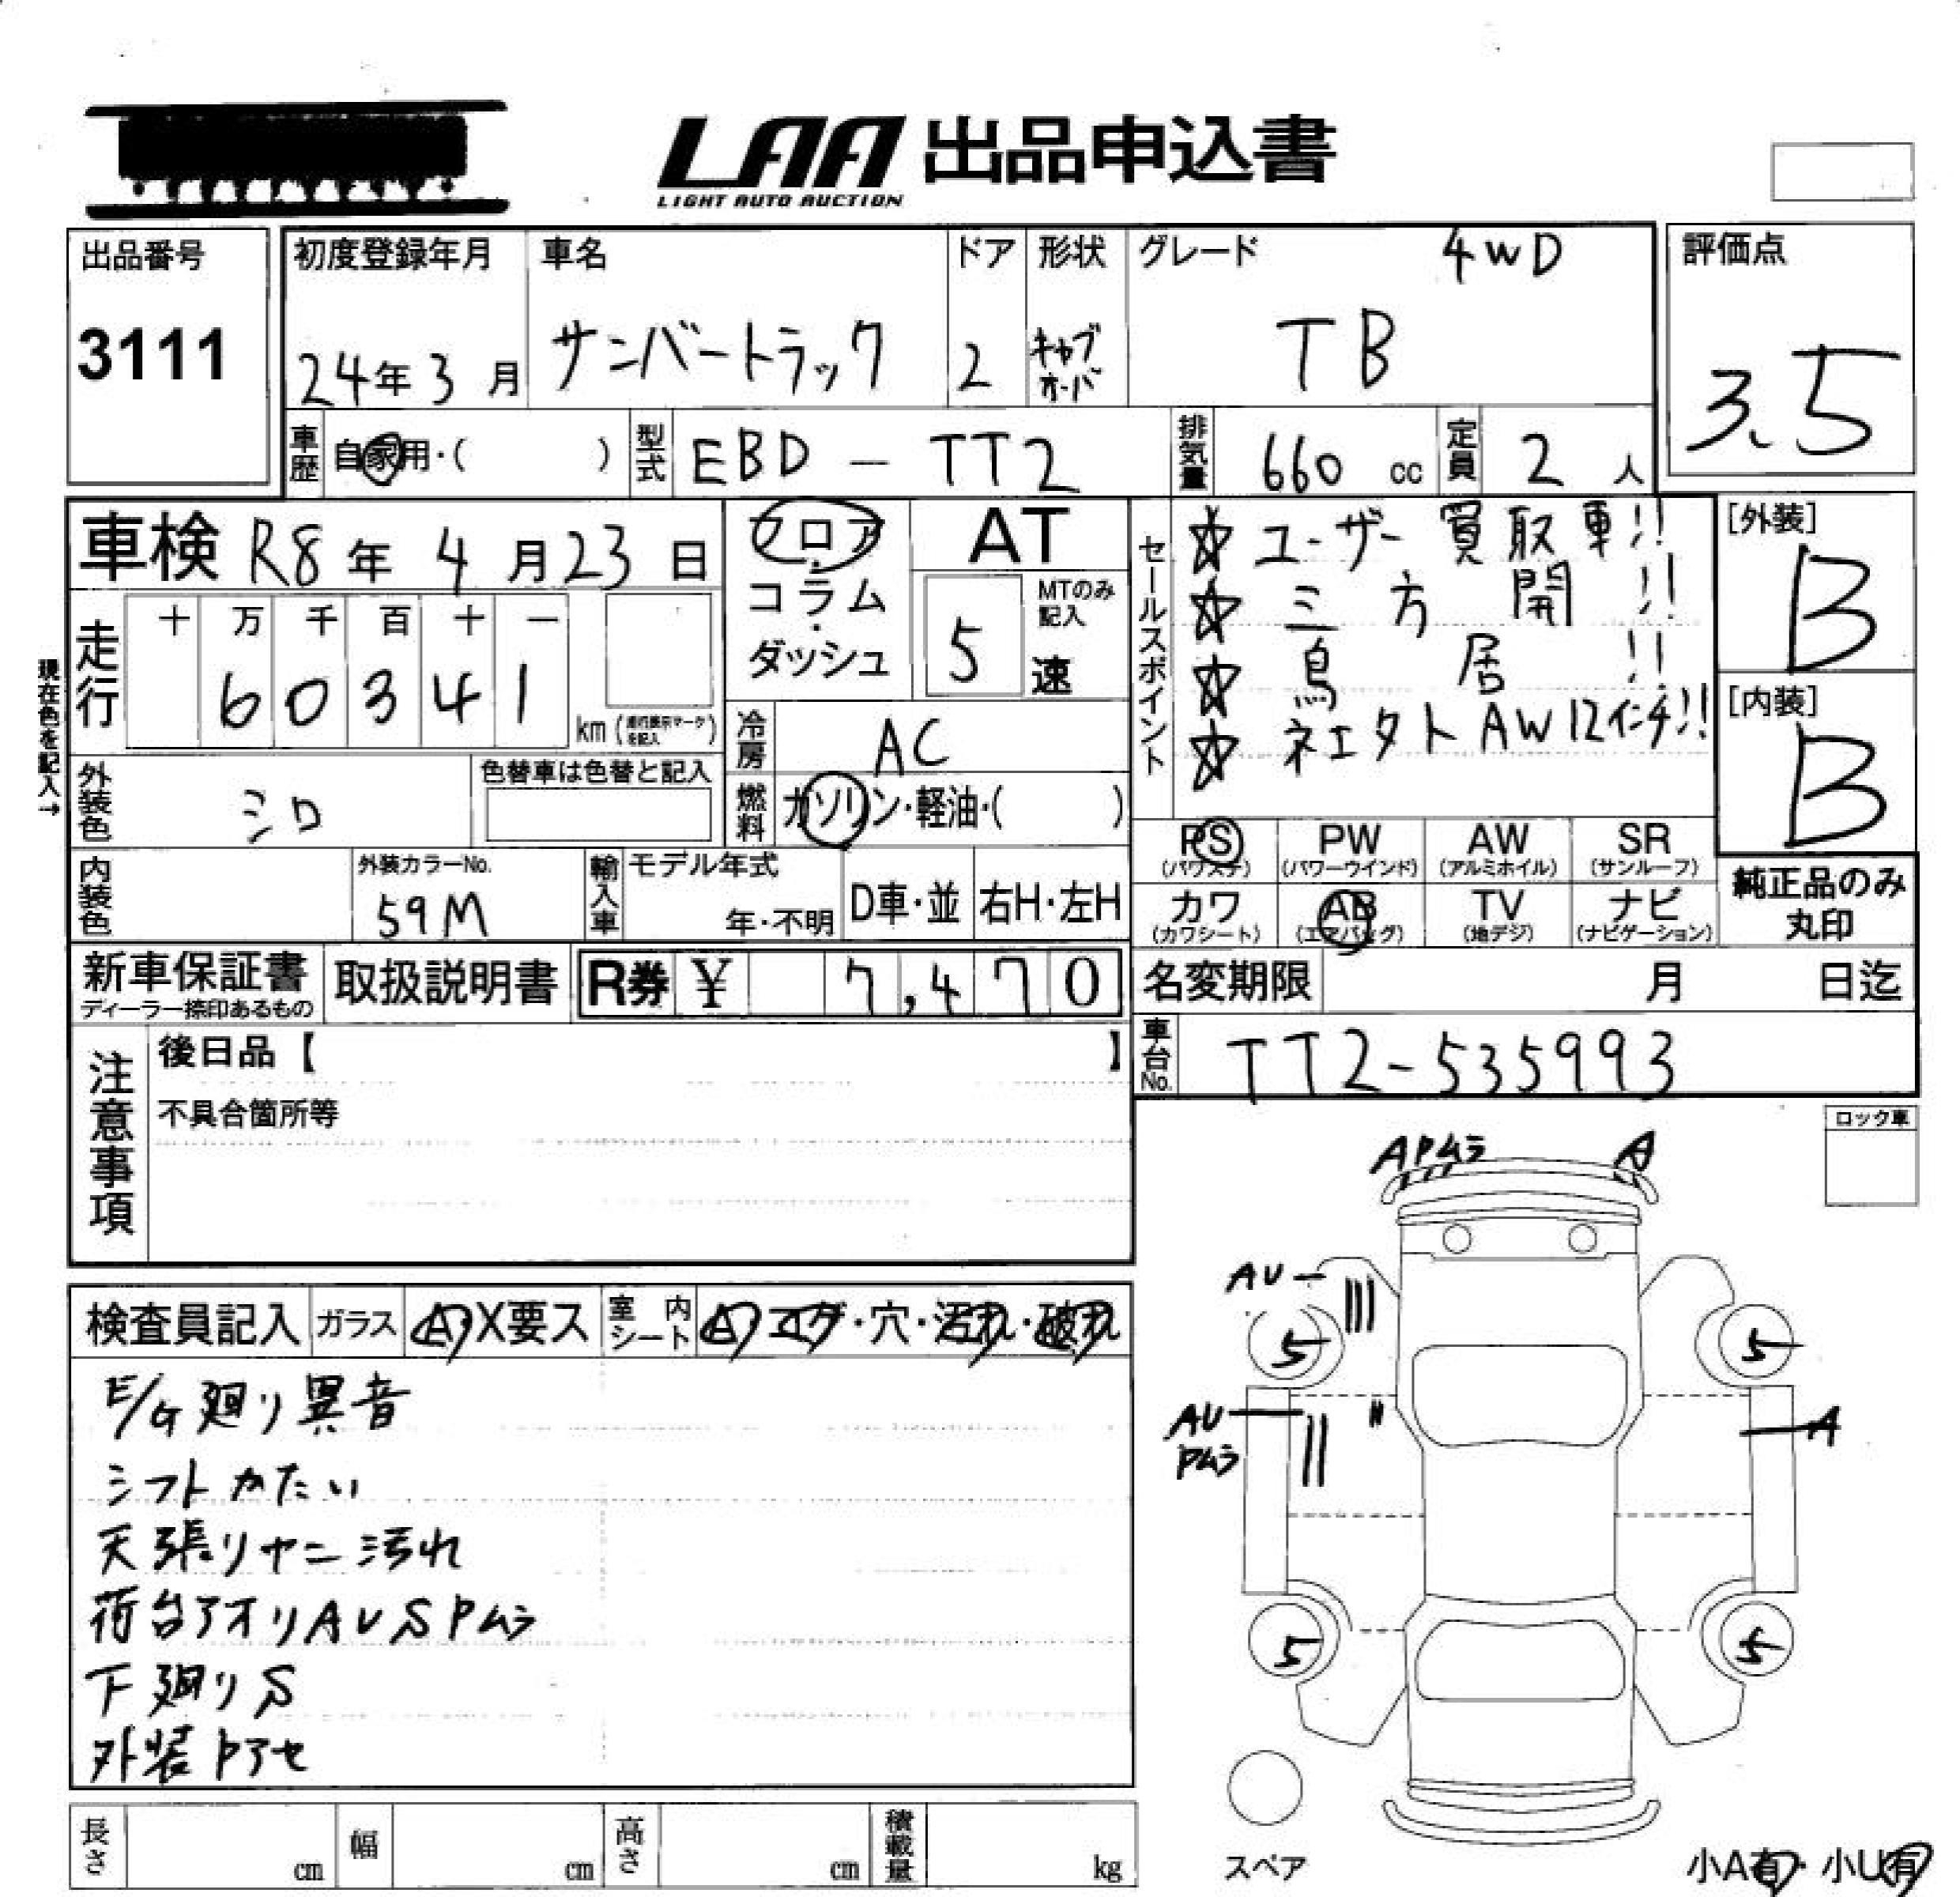 LAA 出品申込書
LIGHT AUTO AUCTION
出品番号
3111
初度登録年月
24年3月
車名
サンバートラック
ドア
2
形状
キャブオーバ
グレード
4WD
TB
評価点
3.5
車歴
自家用・( )
型式
EBD-TT2
排気量
660 cc
定員
2 人
車検 R8年 4月23日
現在色を記入→
走行
十 万 千 百 十 一
6 0 3 4 1
km(走行表示マークを記入)
外装色
シロ
色替車は色替と記入
内装色
外装カラーNo.
59M
フロア・コラム・ダッシュ
AT
MTのみ記入
5 速
冷房
AC
燃料
ガソリン・軽油・( )
輸入車
モデル年式
年・不明
D車・並
右H・左H
セールスポイント
☆ユーザー買取車!!
☆三方開!!
☆鳥居!!
☆ネエクトAW12インチ!!
[外装]
B
[内装]
B
PS
(パワステ)
PW
(パワーウインド)
AW
(アルミホイル)
SR
(サンルーフ)
カワ
(カワシート)
AB
(エアバッグ)
TV
(地デジ)
ナビ
(ナビゲーション)
純正品のみ
丸印
新車保証書
ディーラー捺印あるもの
取扱説明書
R券 ¥ 7,470
名変期限 月 日迄
車台No.
TT2-535993
注意事項
後日品【 】
不具合箇所等
ロック車
検査員記入
ガラス
A・X要ス
室内シート
A・コゲ・穴・汚れ・破れ
E/G廻り異音
シフトかたい
天張りヤニ汚れ
荷台アオリAUSPムラ
下廻りS
外装トアセ
APムラ
A
AU
5
5
AU
Pムラ
A
5
5
スペア
小A有・小U有
長さ cm
幅 cm
高さ cm
積載量 kg